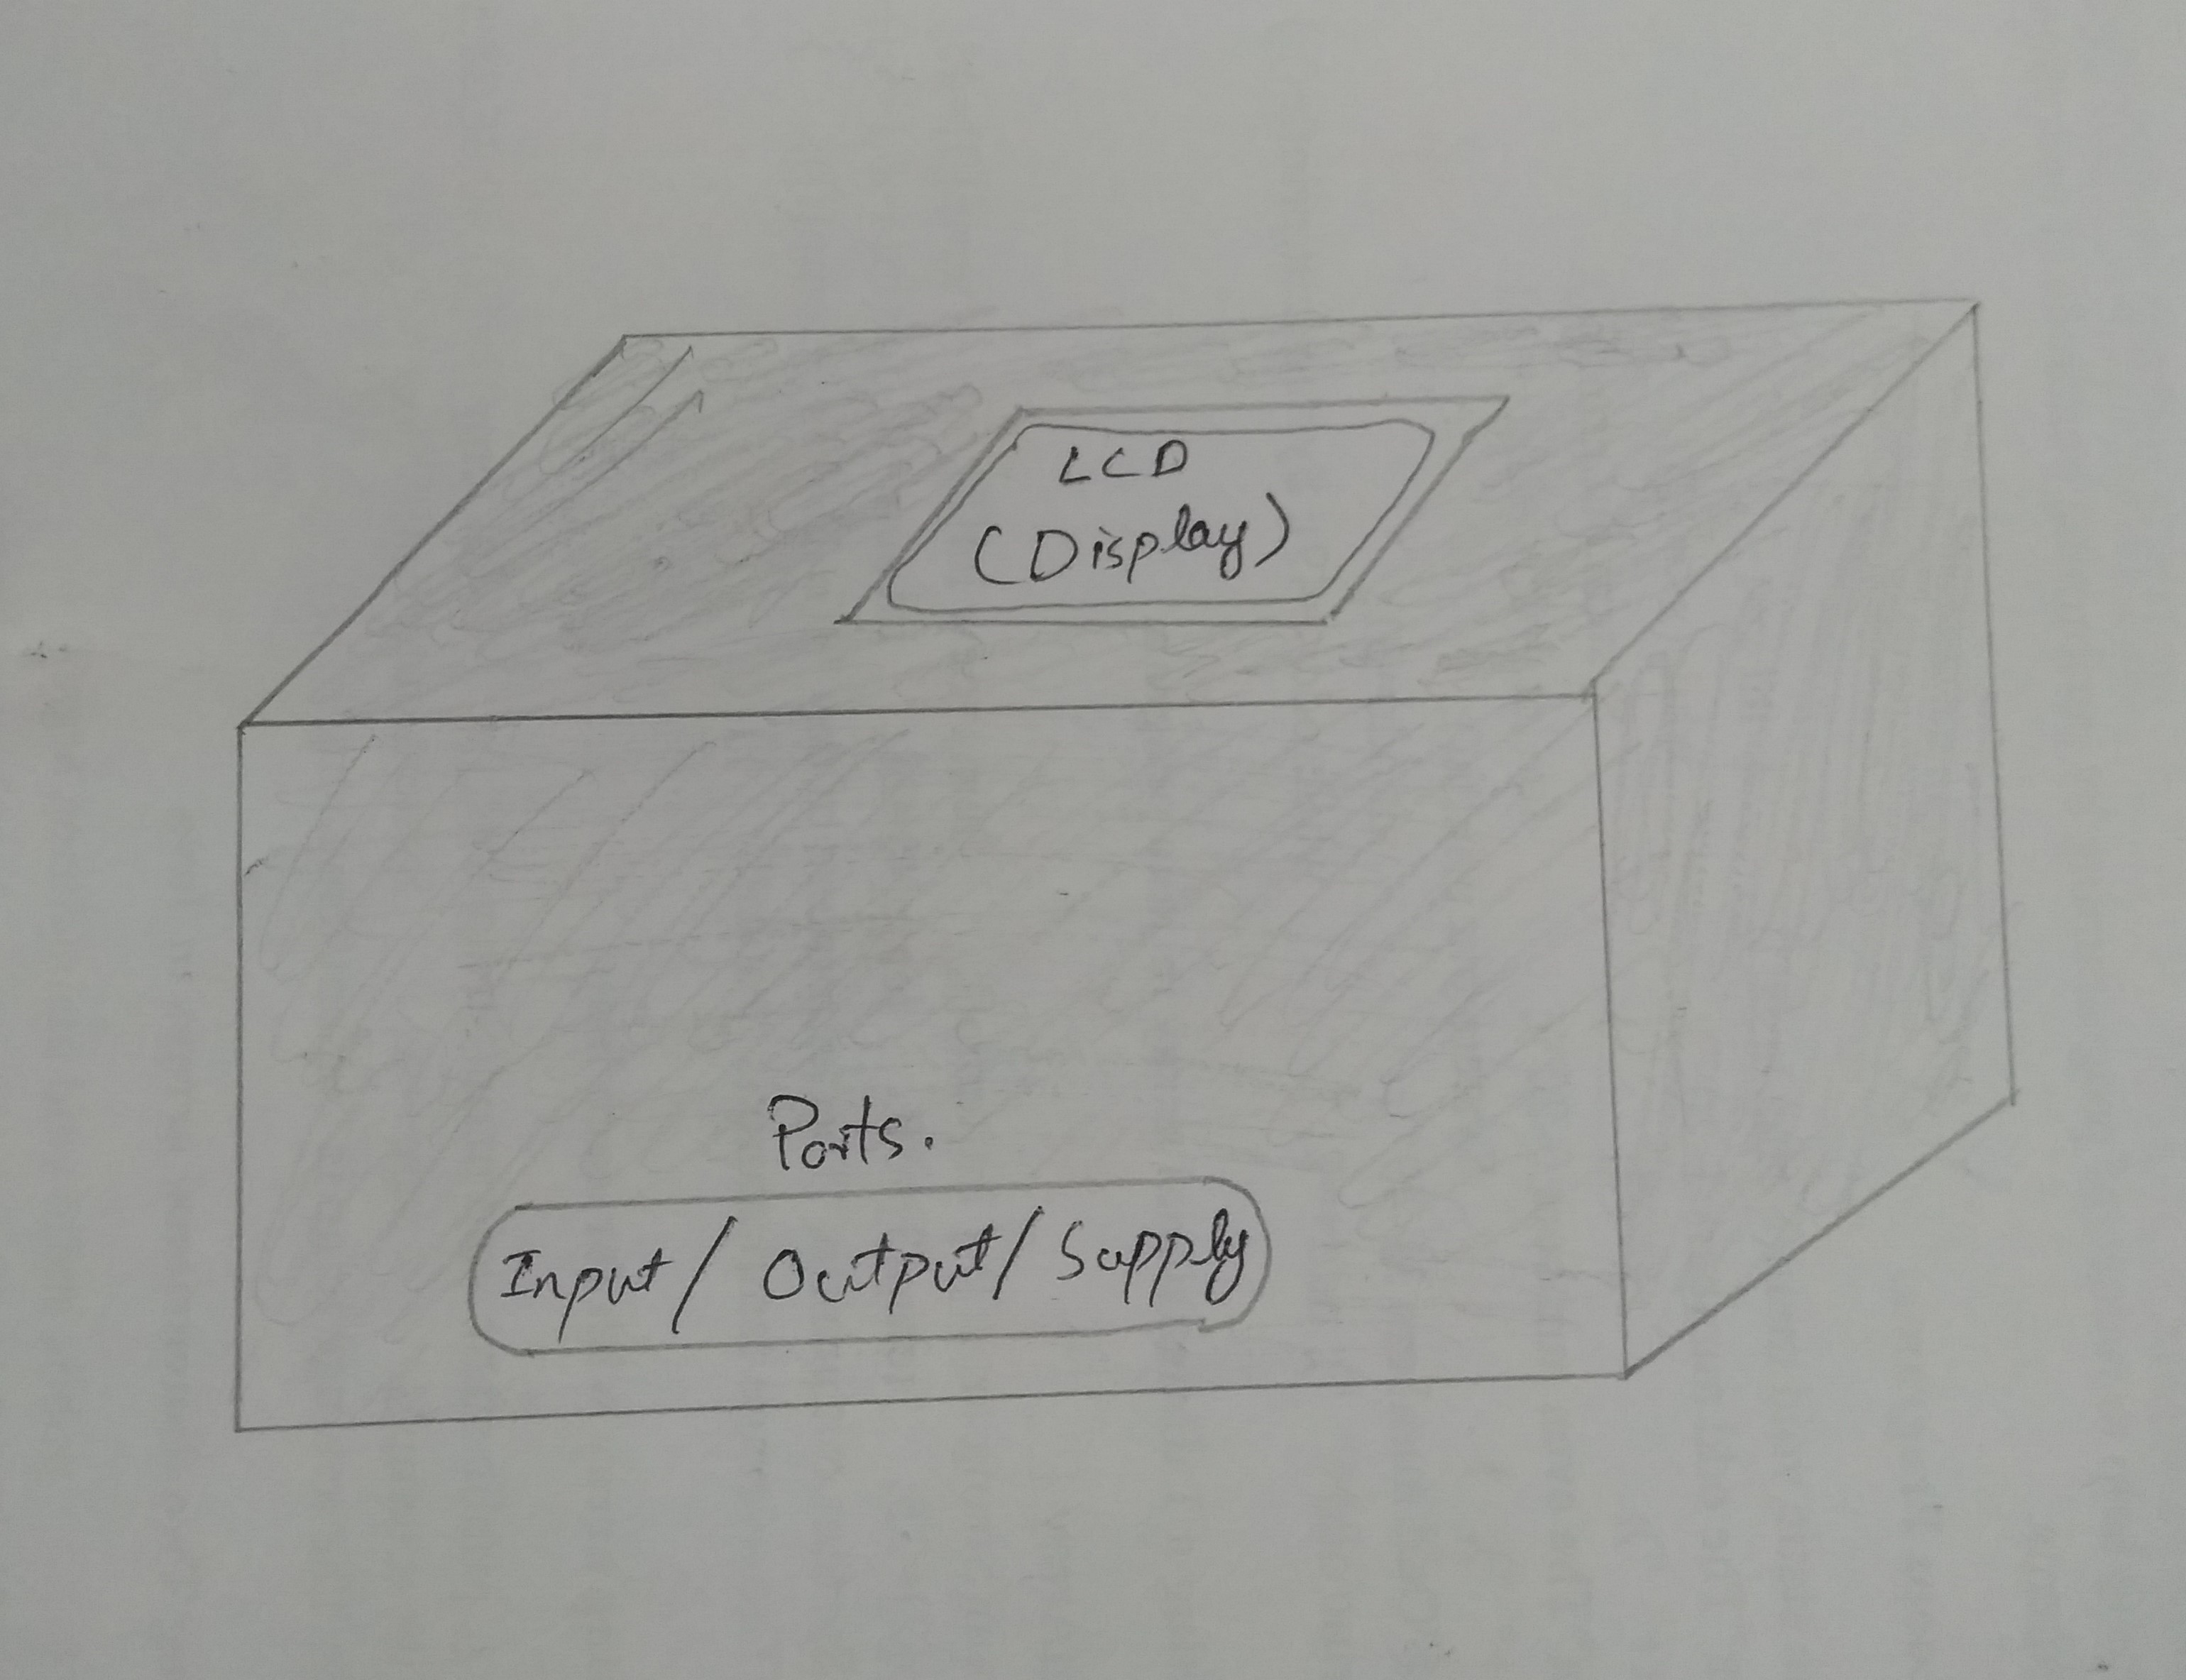 LCD
(Display)
Ports.
Input/ Output/ Supply